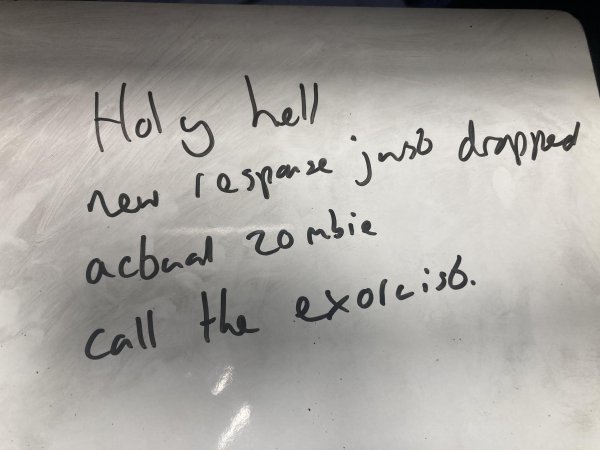 Holy hell
new response just dropped
actual zombie
call the exorcist.